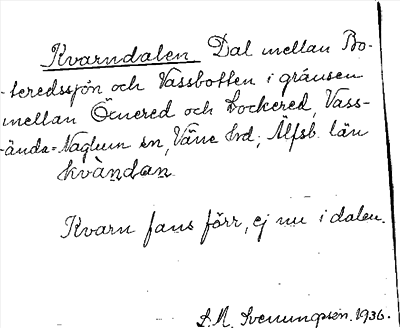 Kvarndalen Dal mellan Bo-
teredssjön och Vassbotten i gränsen
mellan Öenered och Lockered, Vass-
ända-Naglum sn, Väne hrd, Älfsb. län
kvàndan
Kvarn fans förr, ej nu i dalen.
S.A. Svenungsén. 1936.